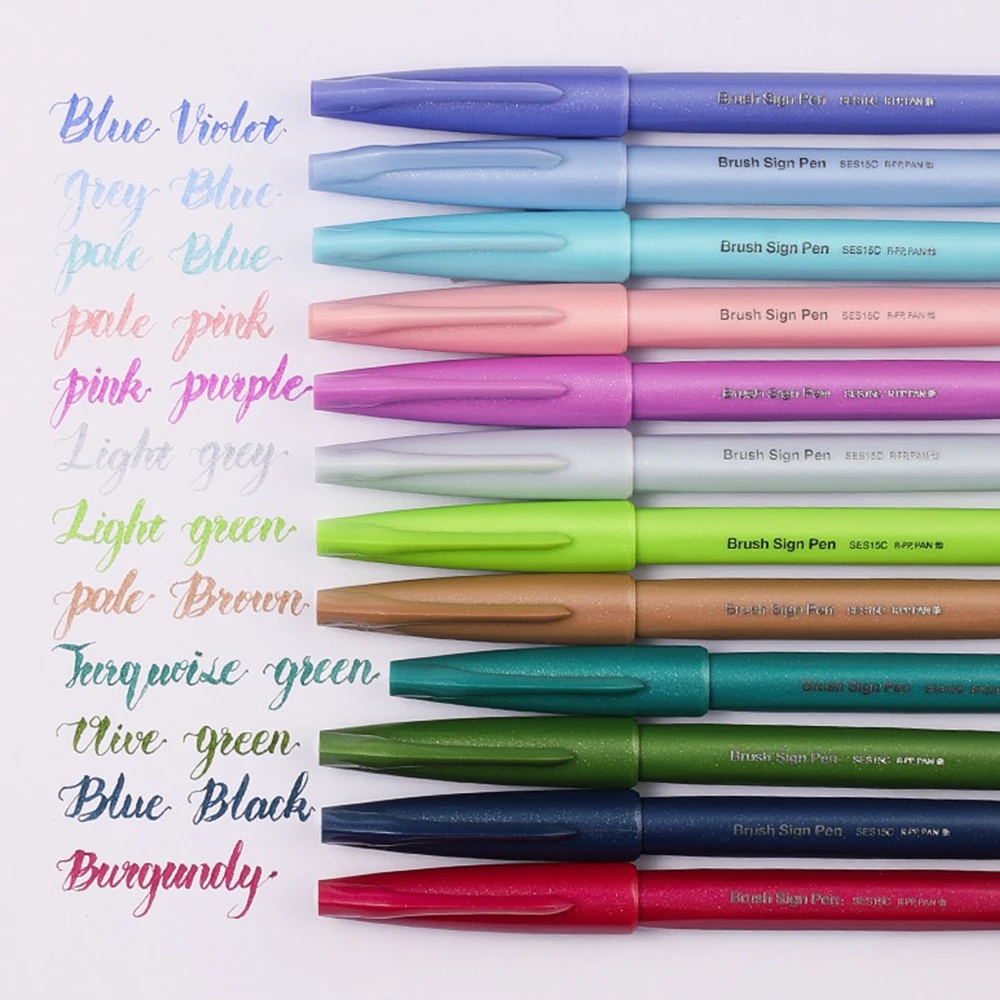 Blue Violet
Brush Sign Pen SES15C R-PP, PAN
grey Blue
Brush Sign Pen SES15C R-PP, PAN
pale Blue
Brush Sign Pen SES15C R-PP, PAN
pale pink
Brush Sign Pen SES15C R-PP, PAN
pink purple
Brush Sign Pen SES15C R-PP, PAN
Light grey
Brush Sign Pen SES15C R-PP, PAN
Light green
Brush Sign Pen SES15C R-PP, PAN
pale Brown
Brush Sign Pen SES15C R-PP, PAN
Turquoise green
Brush Sign Pen SES15C
Olive green
Brush Sign Pen SES15C R-PP, PAN
Blue Black
Brush Sign Pen SES15C R-PP, PAN
Burgundy
Brush Sign Pen SES15C R-PP, PAN